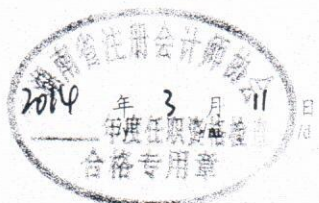 湖南省注册会计师协会
2014 年 3 月 11 日
年度任职资格检查
合格专用章
/d